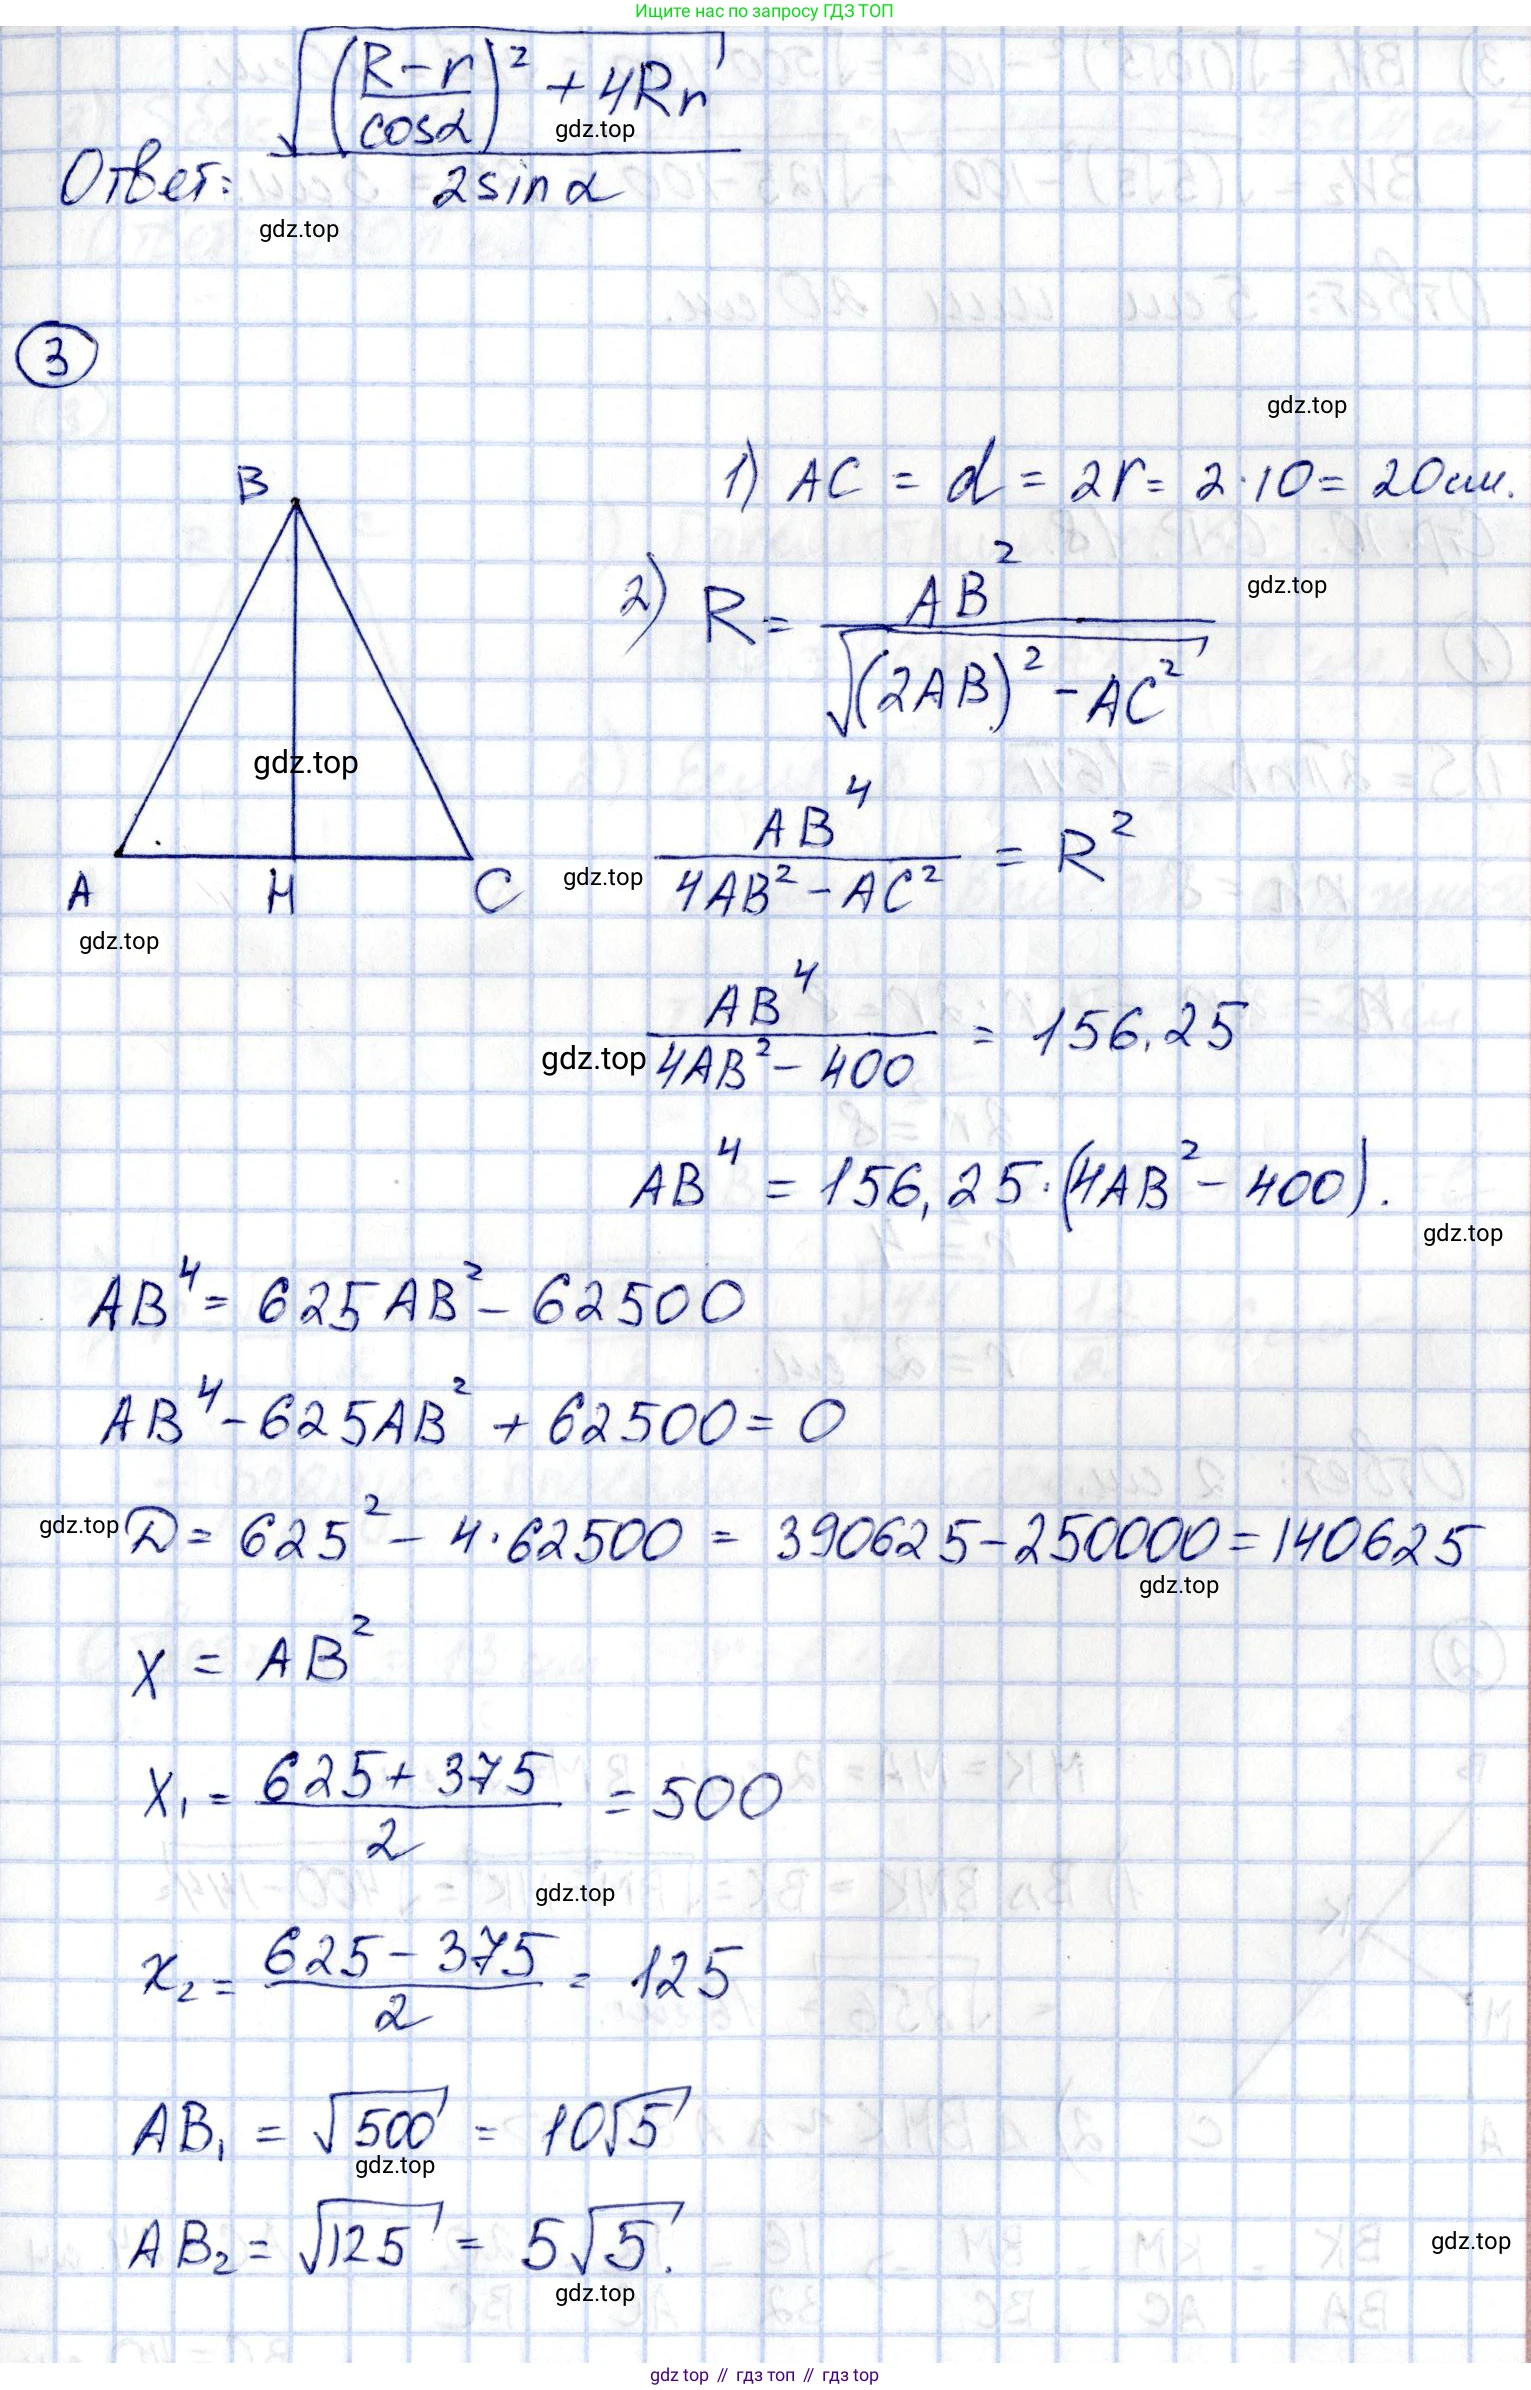 Ищите нас по запросу ГДЗ ТОП
Ответ: √((R-r)/cosα)² + 4Rr / 2sinα
gdz.top
gdz.top
3
gdz.top
B
1) AC = d = 2r = 2·10 = 20 см.
2) R = AB² / √(2AB)² - AC²
gdz.top
gdz.top
AB⁴ / 4AB² - AC² = R²
A H C
gdz.top
gdz.top
AB⁴ / 4AB² - 400 = 156,25
gdz.top
AB⁴ = 156,25·(4AB² - 400).
gdz.top
AB⁴ = 625AB² - 62500
AB⁴ - 625AB² + 62500 = 0
gdz.top
D = 625² - 4·62500 = 390625 - 250000 = 140625
gdz.top
X = AB²
X₁ = 625 + 375 / 2 = 500
gdz.top
x₂ = 625 - 375 / 2 = 125
AB₁ = √500 = 10√5
gdz.top
AB₂ = √125 = 5√5.
gdz.top
gdz.top
gdz top // гдз топ // гдз top